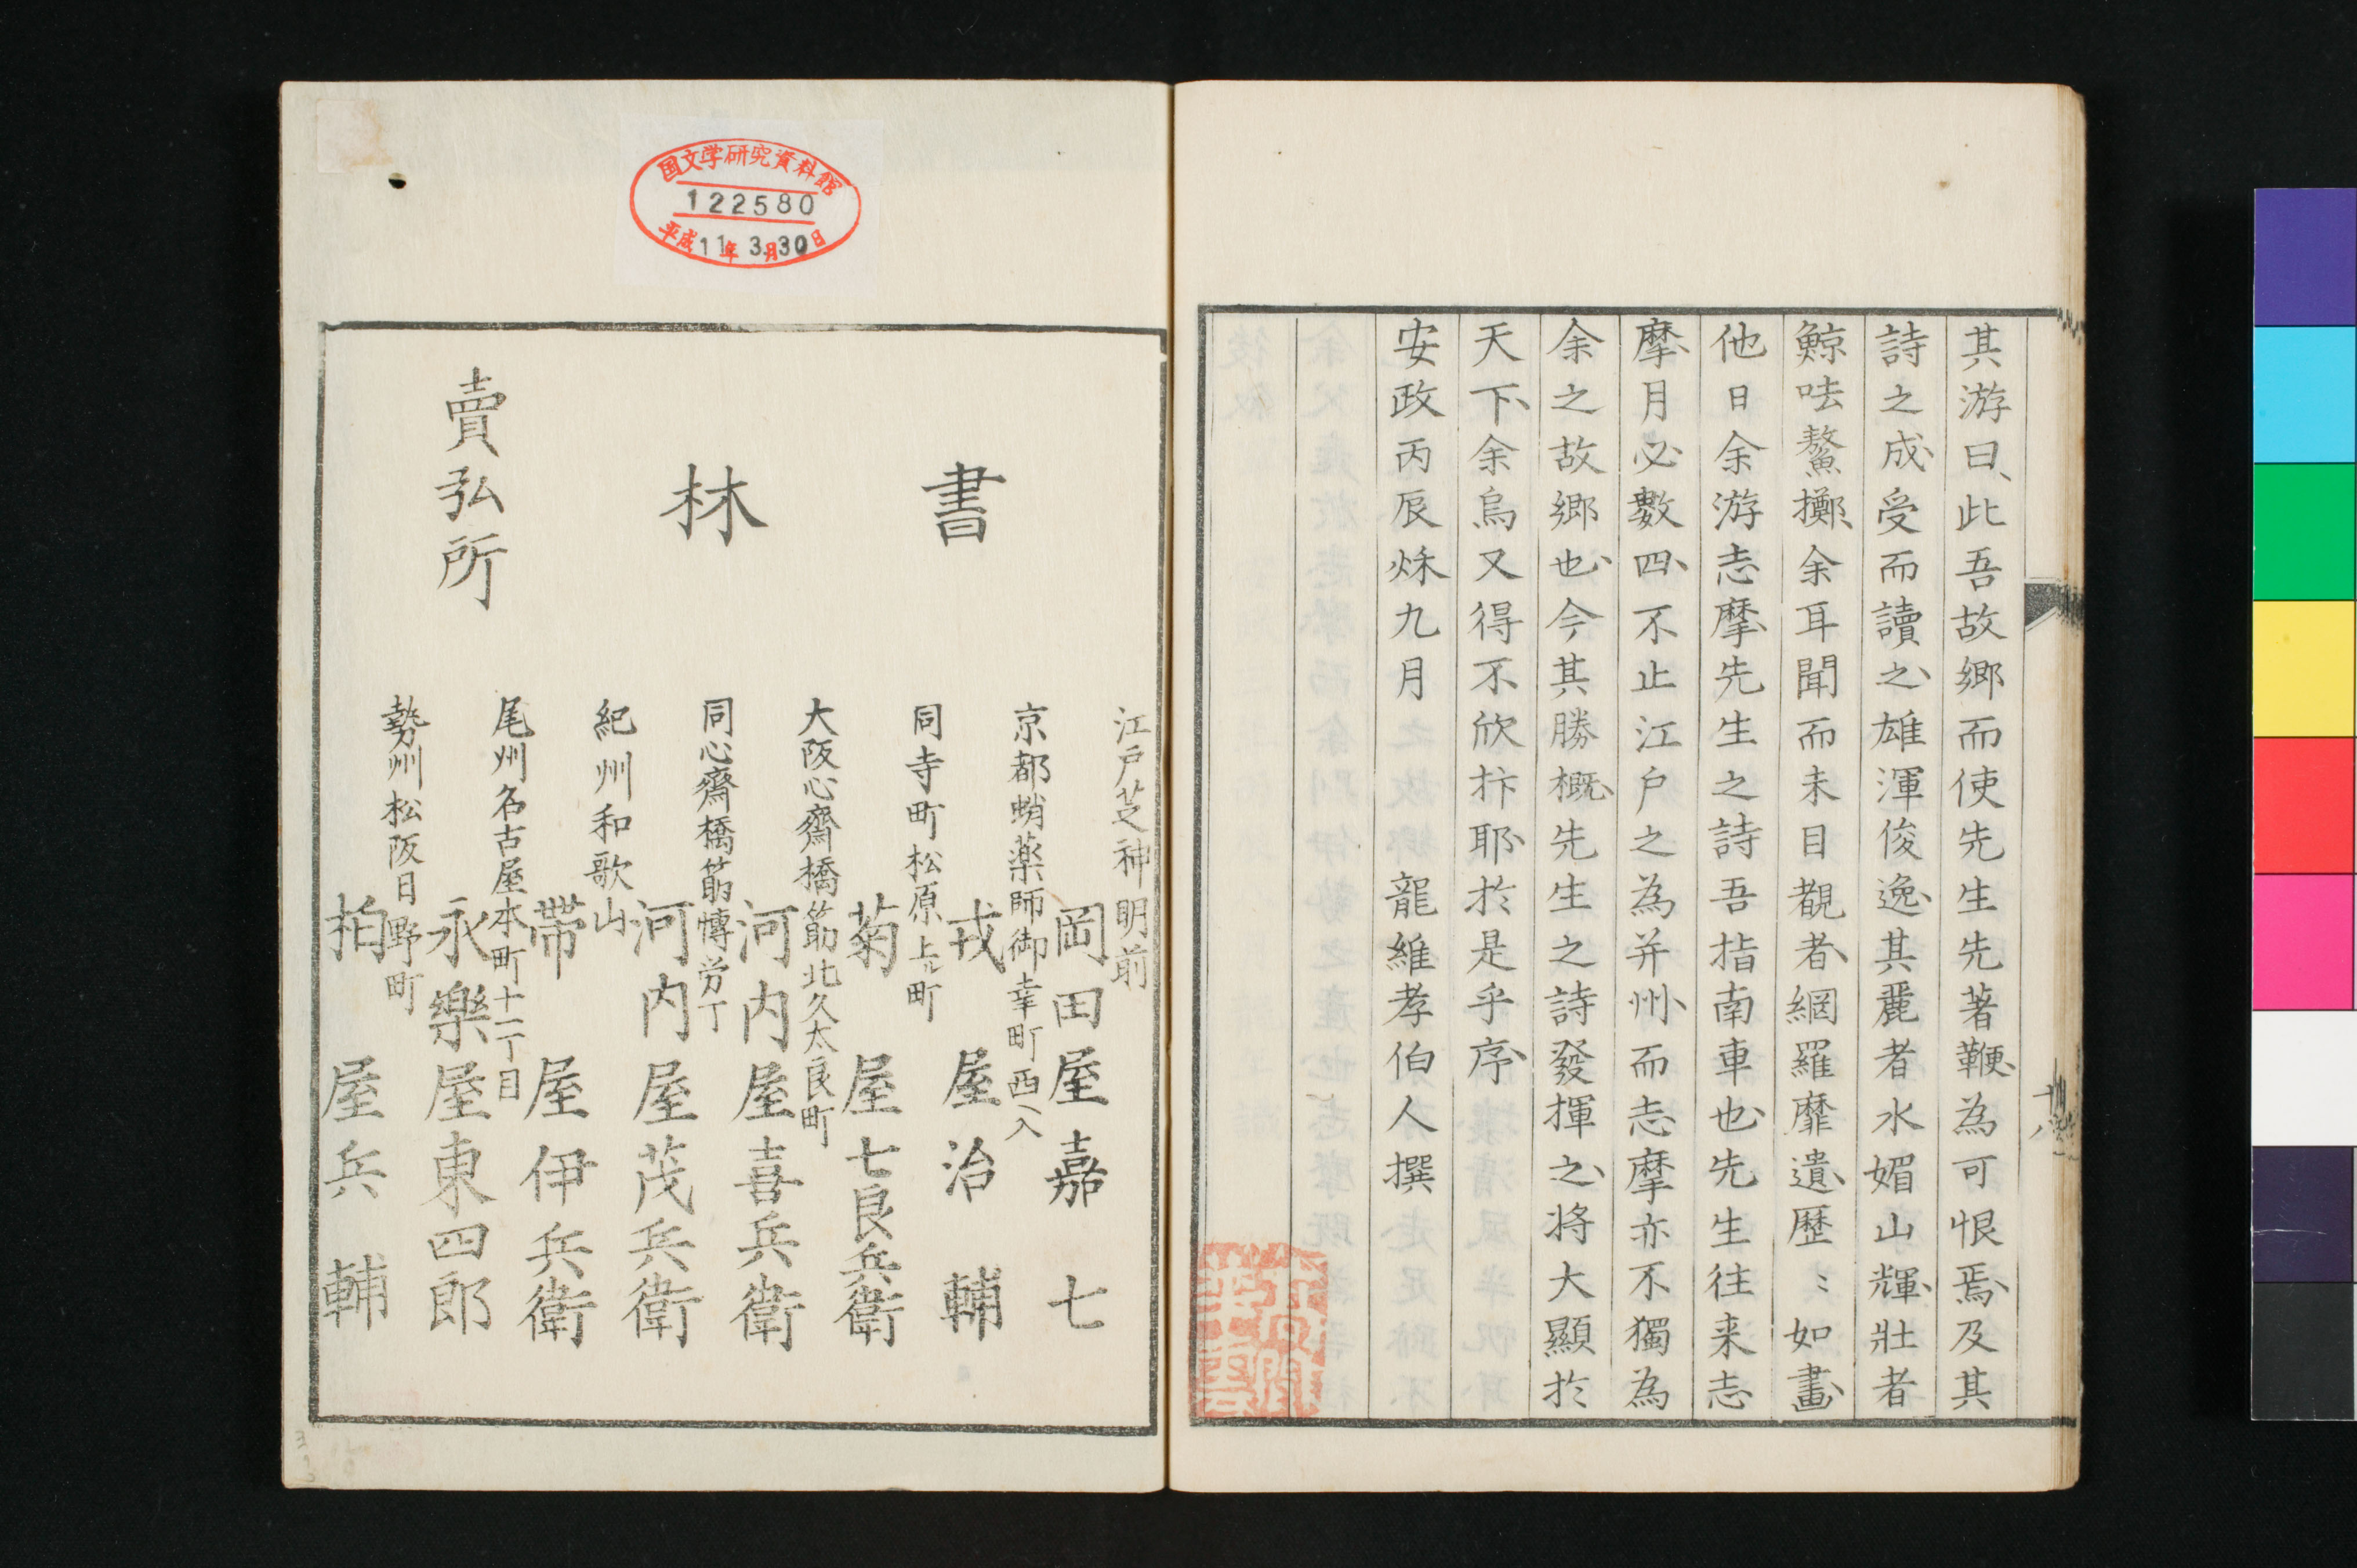 其游曰、此吾故鄉而使先生先著鞭、為可恨焉、及其
詩之成、受而讀之、雄渾俊逸、其麗者水媚山輝、壯者
鯨呿鰲擲、余耳聞而未目覩者、網羅靡遺、歷〻如畫、
他日余游志摩、先生之詩吾指南車也、先生往来志
摩、月必數四、不止江戶之為并州、而志摩亦不獨為
余之故鄉也、今其勝概、先生之詩發揮之、将大顯於
天下、余烏又得不欣抃耶、於是乎序、
安政丙辰秌九月　龍維孝伯人撰
十八
国文学研究資料館
122580
平成11年3月30日
書林
賣弘所
江戶芝神明前
岡田屋嘉七
京都蛸薬師御幸町西入
戎屋治輔
同寺町松原上ル町
菊屋七良兵衛
大阪心齋橋筋北久太良町
河内屋喜兵衛
同心齋橋筋博労丁
河内屋茂兵衛
紀州和歌山
帶屋伊兵衛
尾州名古屋本町十一丁目
永樂屋東四郎
勢州松阪日野町
柏屋兵輔